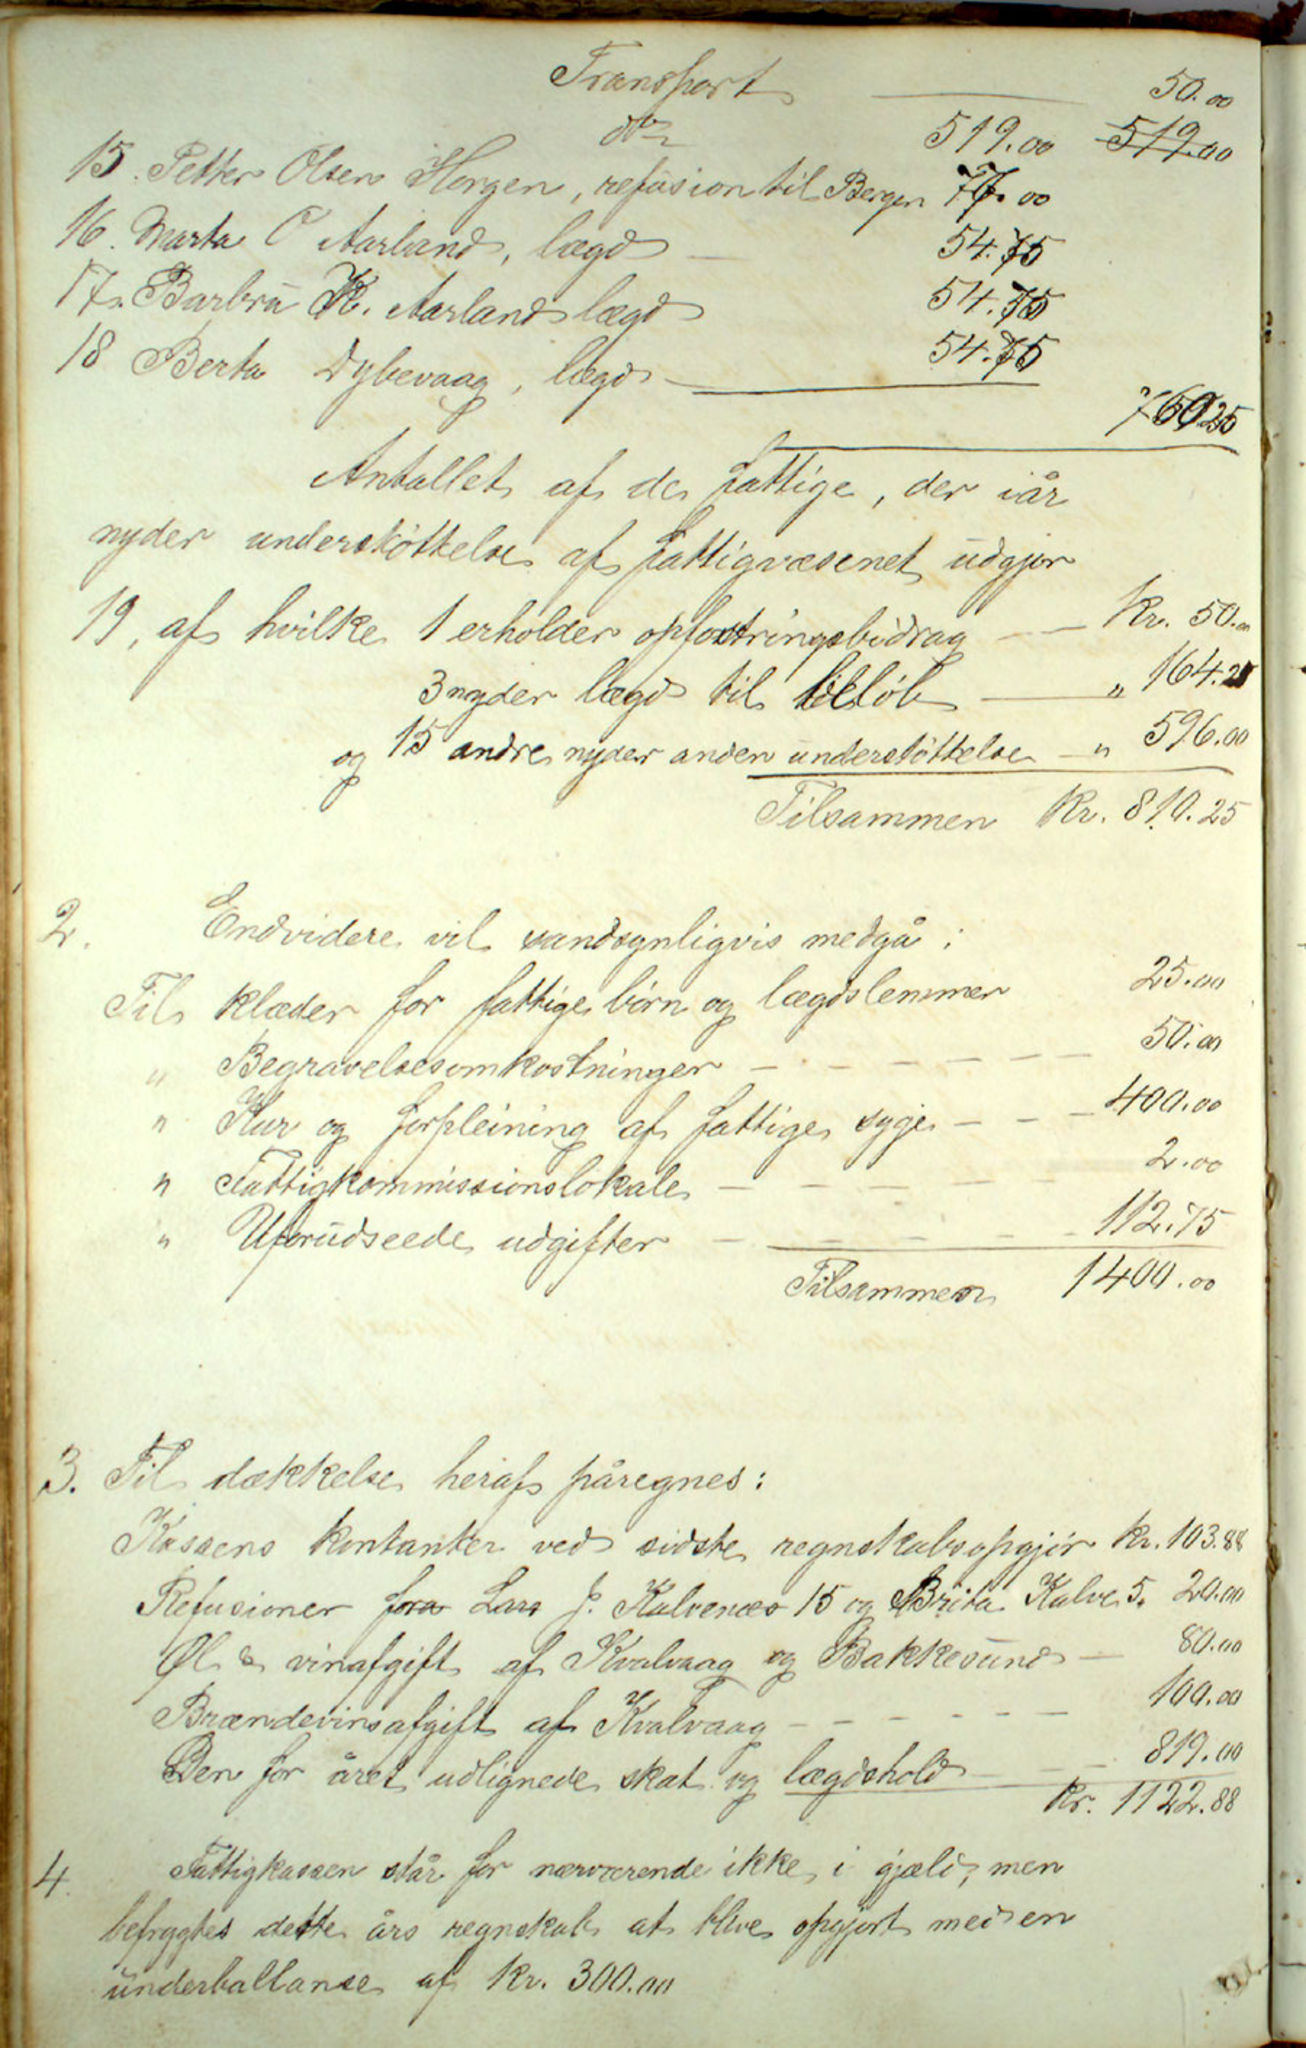 Transport 50.00
do 519.00 519.00
15. Petter Olsen Horgen, refusion til Bergen 77.00
16. Marta O Aarland, lægd 54.75
17. Barbra K. Aarland lægd 54.75
18 Berta Dybevaag, lægd 54.75
760.25
Antallet af de fattige, der iår
nyder understöttelse af fattigvæsenet udgjör
19, af hvilke 1 erholder opfostringsbidrag Kr. 50.00
3 nyder lægd til beløb " 164.25
og 15 andre nyder anden understöttelse " 596.00
Tilsammen Kr. 810.25
2. Endvidere vil sandsynligvis medgå:
Til klæder for fattige börn og lægdslemmer 25.00
" Begravelsesomkostninger 50.00
" Kur og forpleining af fattige syge 400.00
" Fattigkommissionslokale 2.00
" Uforudseede udgifter 112.75
Tilsammen 1400.00
3. Til dækkelse heraf påregnes:
Kassens kontanter ved sidste regnskabsopgjör Kr. 103.88
Refusioner fra Lars J. Kalvenæs 15 og Brita Kalve 5. 20.00
Øl & vinafgift af Kvalvaag og Bakkesund 80.00
Brændevinsafgift af Kvalvaag 100.00
Den for året udlignede skat og lægdshold 819.00
Kr. 1122.88
4. Fattigkassen står for nærværende ikke i gjæld, men
befrygtes dette års regnskab at blive opgjort med en
underballanse af Kr. 300.00